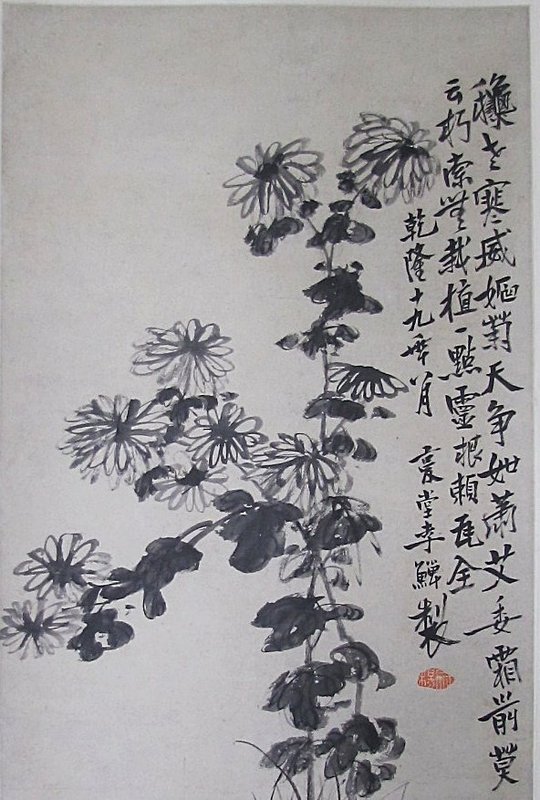 老寒威嫗菊天争如蕭艾委霜前莫
云朽索無栽植一點靈根賴瓦全
乾隆十九年八月 复堂李鱓製